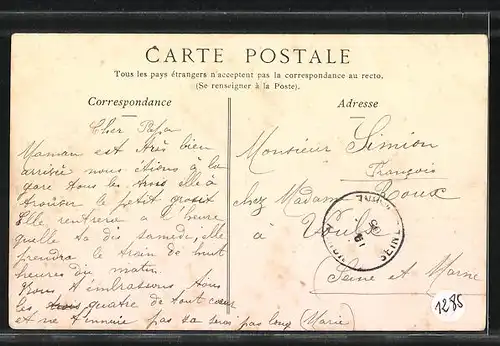 CARTE POSTALE
Tous les pays étrangers n'acceptent pas la correspondance au recto.
(Se renseigner à la Poste).
Correspondance
Cher Papa
Maman est très bien
arrivée nous étions à la
gare tous les trois elle à
trouver le petit
Elle rentrera à l'heure
quelle ta dis samedi, elle
prendra le train de huit
heures du matin.
Nous t'embrassons tous
les trois quatre de tout cœur
et ne t'ennuie pas sa sera pas long (Marie)
Adresse
Monsieur Simion
François
chez Madame Roux
à Voulx
(Seine et Marne
SEINE
1285